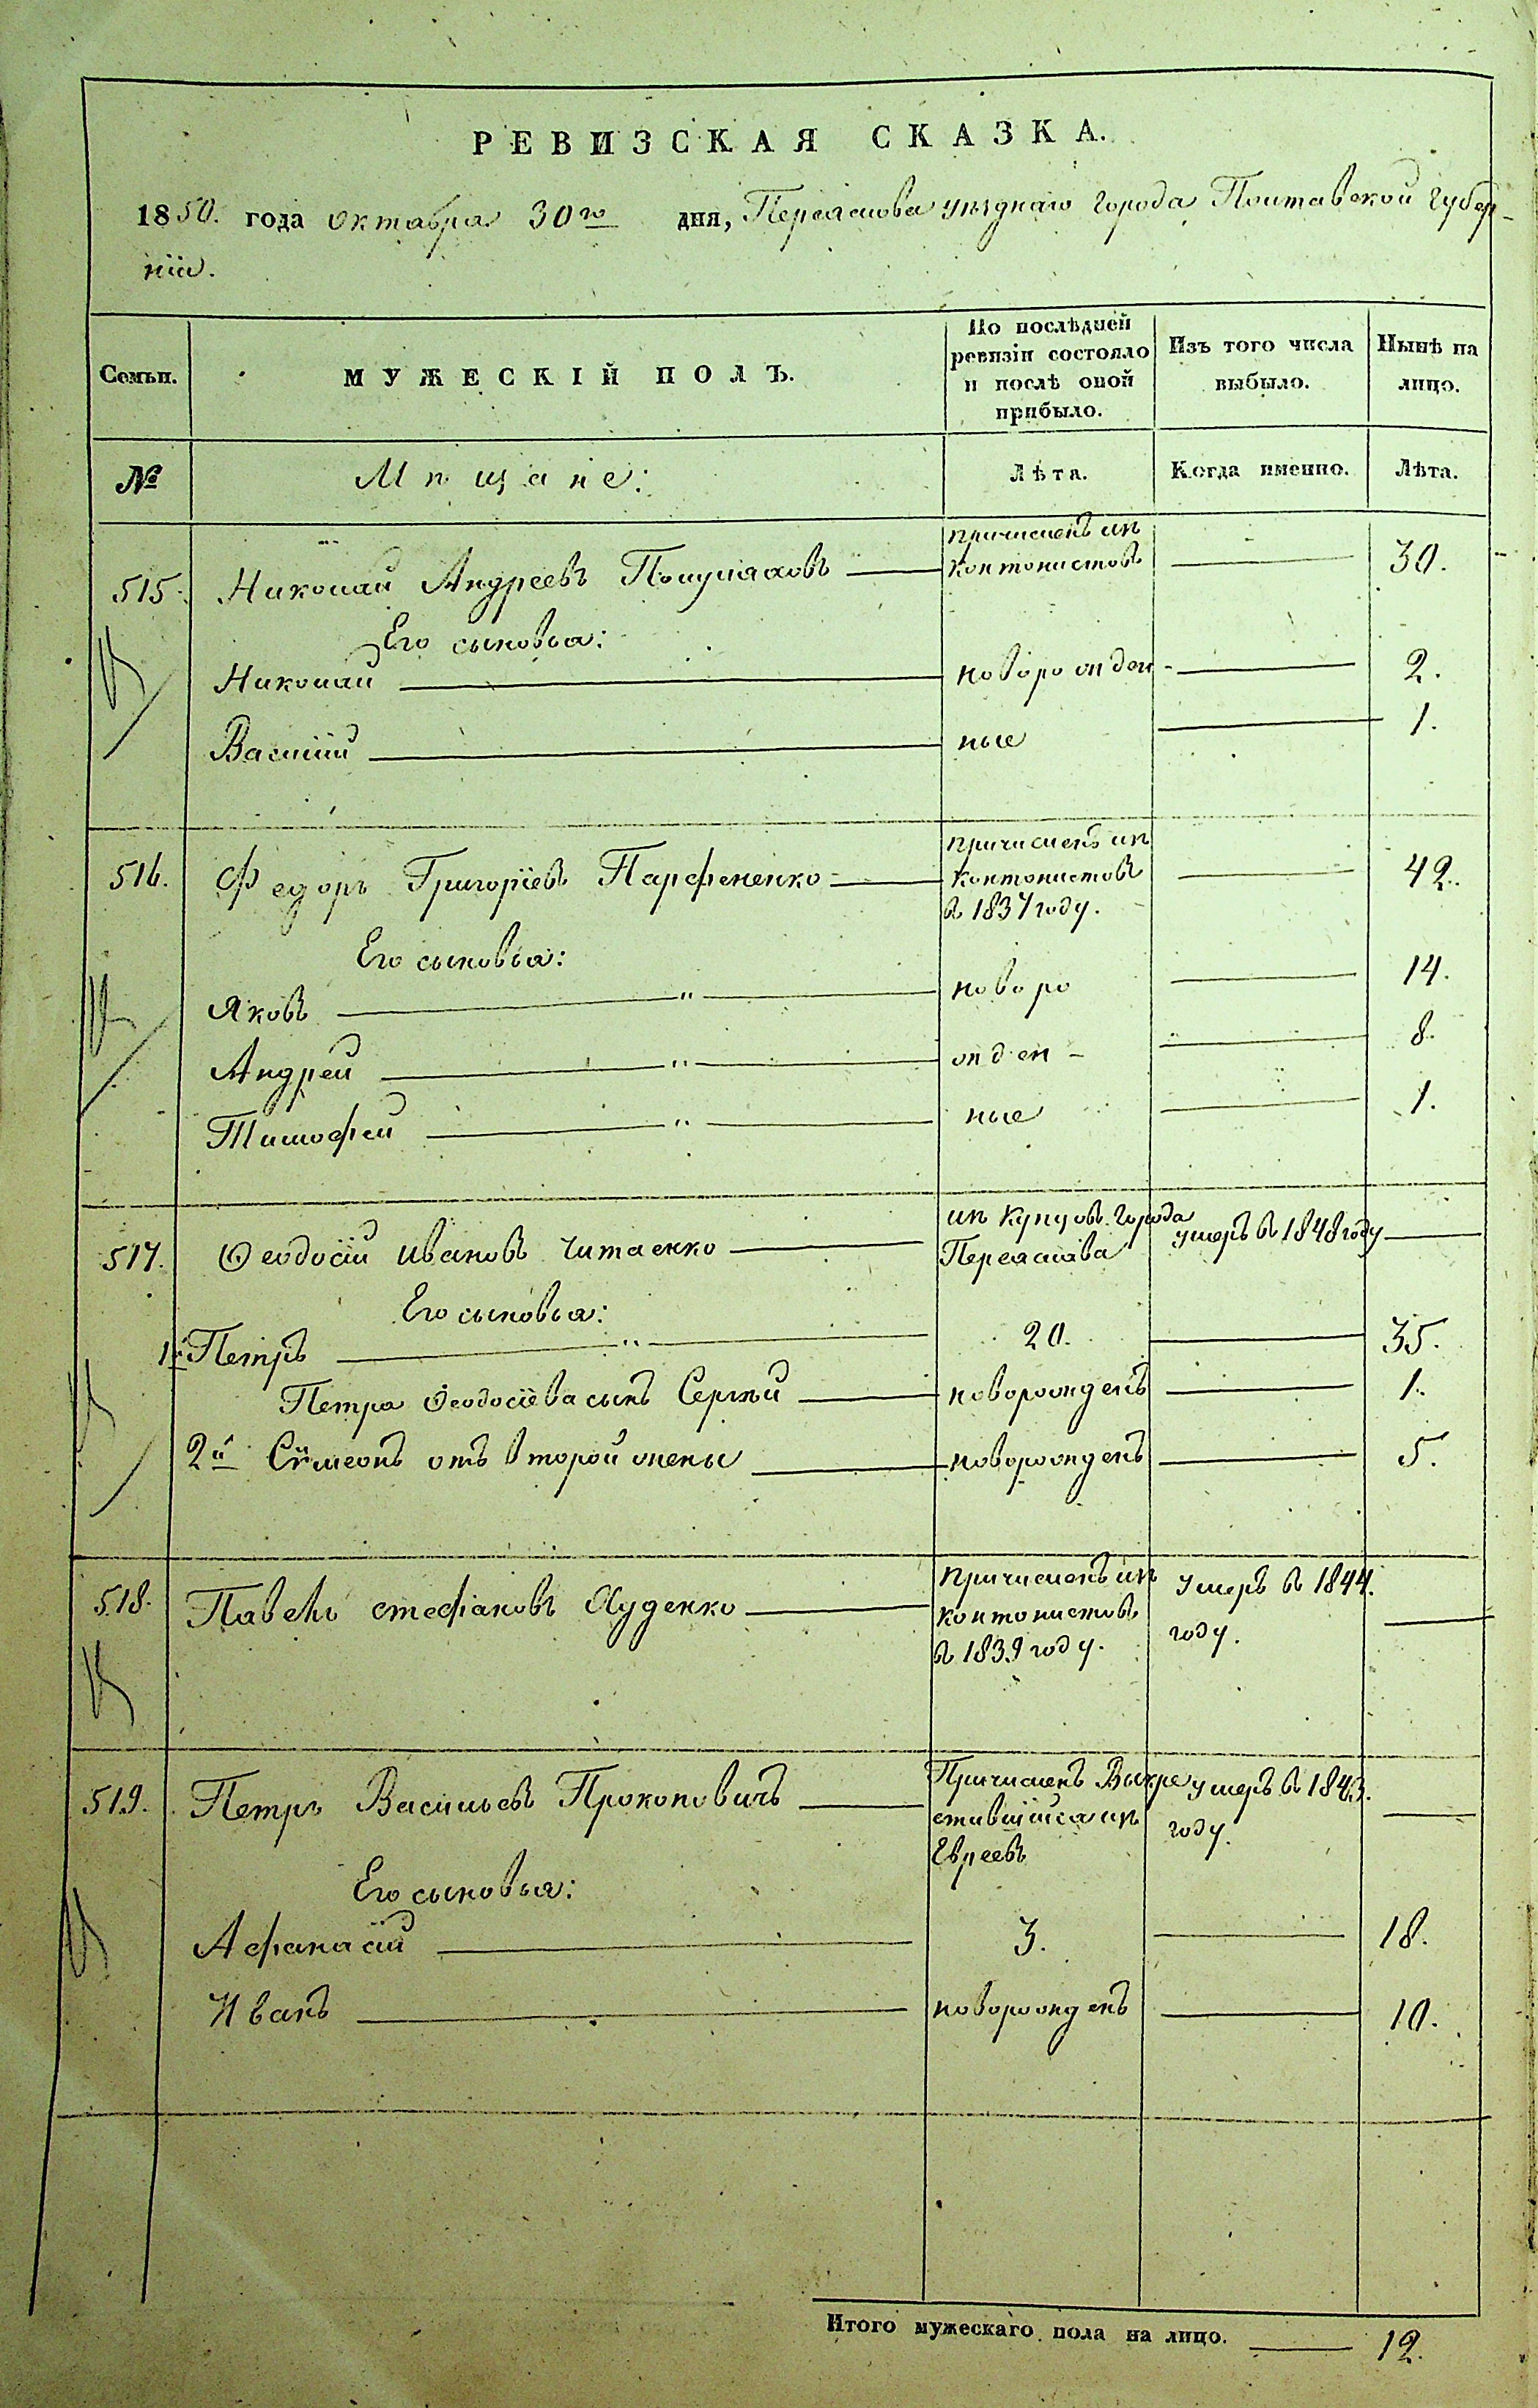 РЕВИЗСКАЯ СКАЗКА.
1850. года Октября 30го дня, Переяслова уѣзднаго города Полтавской губер-
ніи.
Семьи.
МУЖЕСКІЙ ПОЛЪ.
По послѣдней ревизіи состояло и послѣ оной прибыло.
Изъ того числа выбыло.
Нынѣ на лицо.
№
Мѣщане:
Лѣта.
Когда именно.
Лѣта.
515. Николай Андреевъ Полуляховъ — причисленъ изъ кантонистовъ — 30.
Его сыновья:
Николай — новорожден- — 2.
Василій — ные — 1.
516. Федоръ Григоріевъ Парфененко — причисленъ изъ кантонистовъ въ 1837 году. — 42.
Его сыновья:
Яковъ — " — новоро — 14.
Андрей — " — жден- — 8.
Тимофей — " — ные — 1.
517. Ѳеодосій Ивановъ Читаенко — изъ купцовъ города Переяслава умеръ въ 1848 году —
Его сыновья:
1й Петръ — " — 20. — 35.
Петра Ѳеодосіева сынъ Сергѣй — новорожденъ — 1.
2й Сѵмеонъ отъ второй жены — новорожденъ — 5.
518. Павелъ Стефановъ — причисленъ изъ кантонистовъ въ 1839 году. умеръ въ 1844. году. —
519. Петръ Васильевъ Прокоповичъ — Причисленъ Выкрестившійся изъ Евреевъ умеръ въ 1843. году. —
Его сыновья:
Афанасій — 3. — 18.
Иванъ — новорожденъ — 10.
Итого мужескаго пола на лицо. — 12.